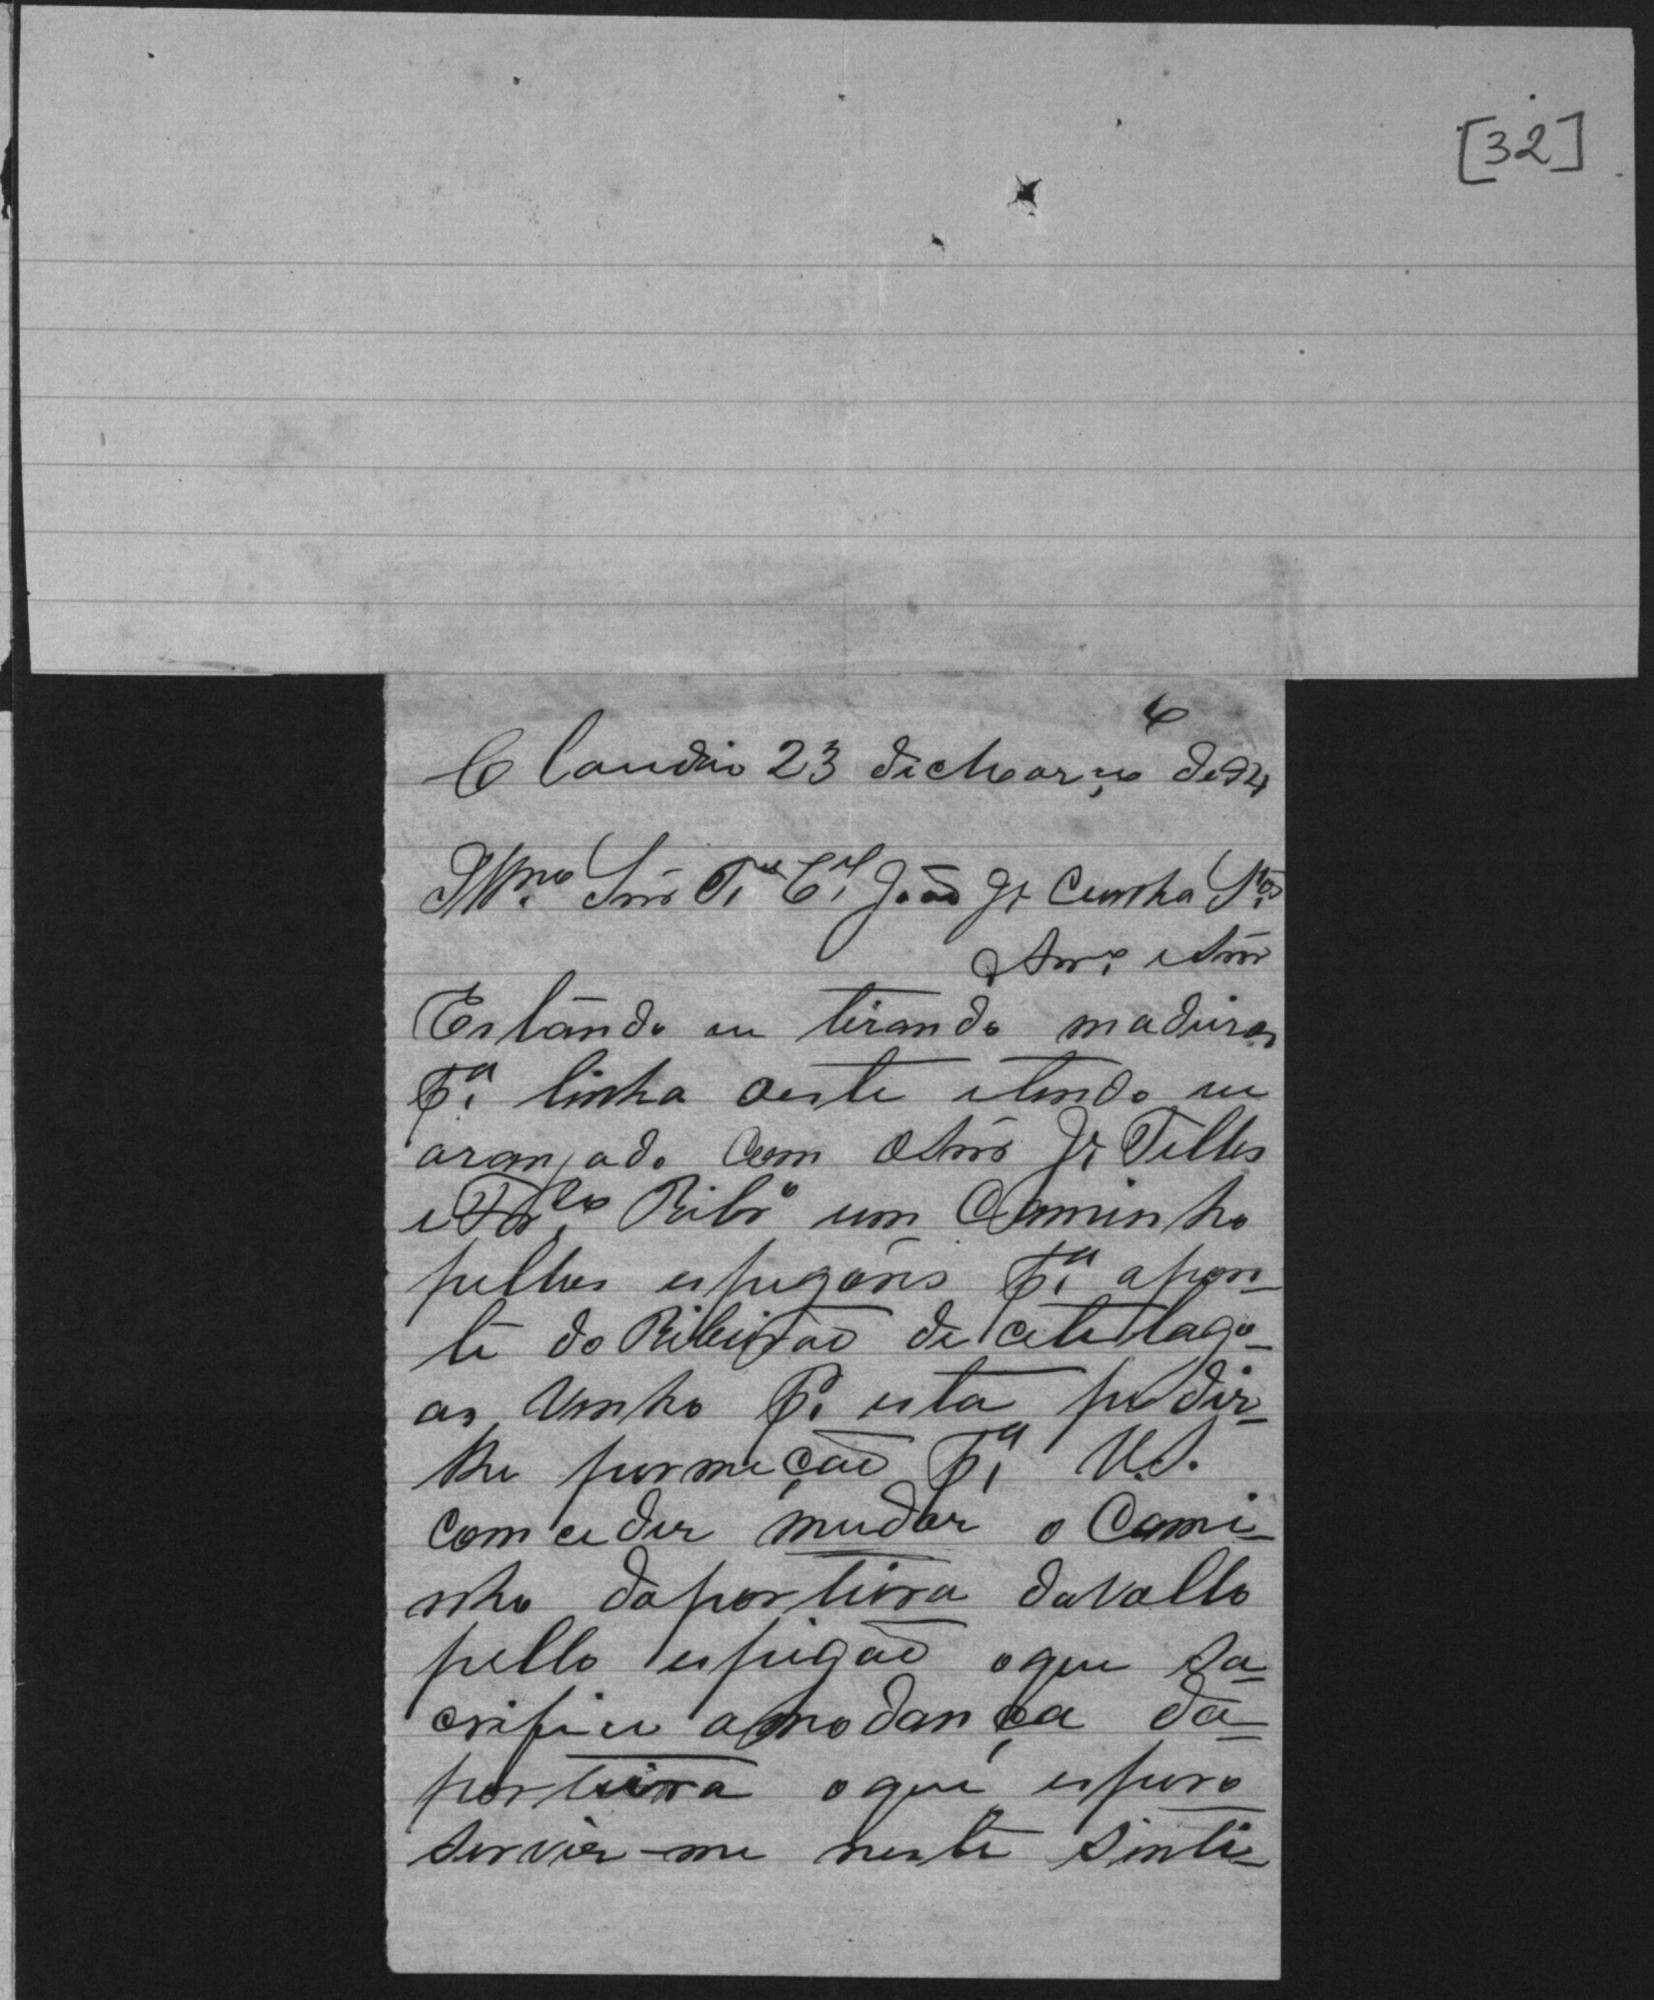 [32]
Claudio 23 de Março de 94
Illmo. Snr. Te. Cel. João Je. Cunha Stos.
Amo. e Snr.
Estando eu tirando madeiras
pa. linha oeste e tendo eu
aranjado com o Snr. Je. Telles
e Franco. Ribro. um Caminho
pellos espegões pa. apon-
te do Ribeirão de cete lago-
as venho p. esta pedir-
lhe permeção pa. V. S.
comceder mudar o Cami-
nho daporteira dovallo
pello espigão oque sa-
crifice amodança da-
porteira oque espero
servir-me neste sinti-